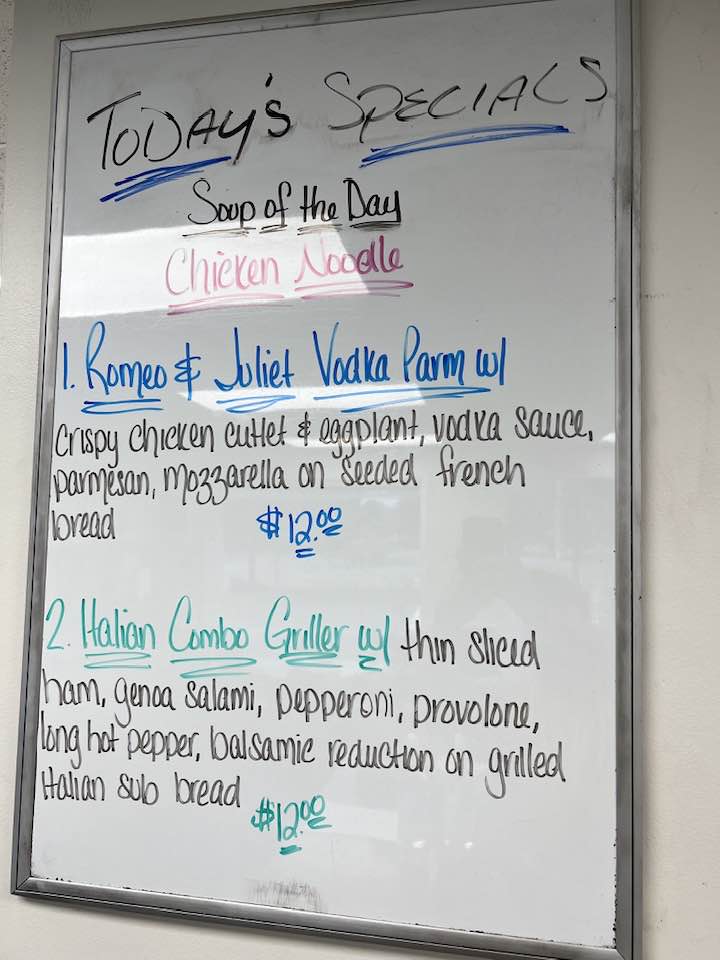 TODAY'S SPECIALS
Soup of the Day
Chicken Noodle
1. Romeo & Juliet Vodka Parm w/
crispy chicken cutlet & eggplant, vodka sauce,
parmesan, mozzarella on seeded french
bread
$12.00
2. Italian Combo Griller w/ thin sliced
ham, genoa salami, pepperoni, provolone,
long hot pepper, balsamic reduction on grilled
Italian sub bread
$12.00